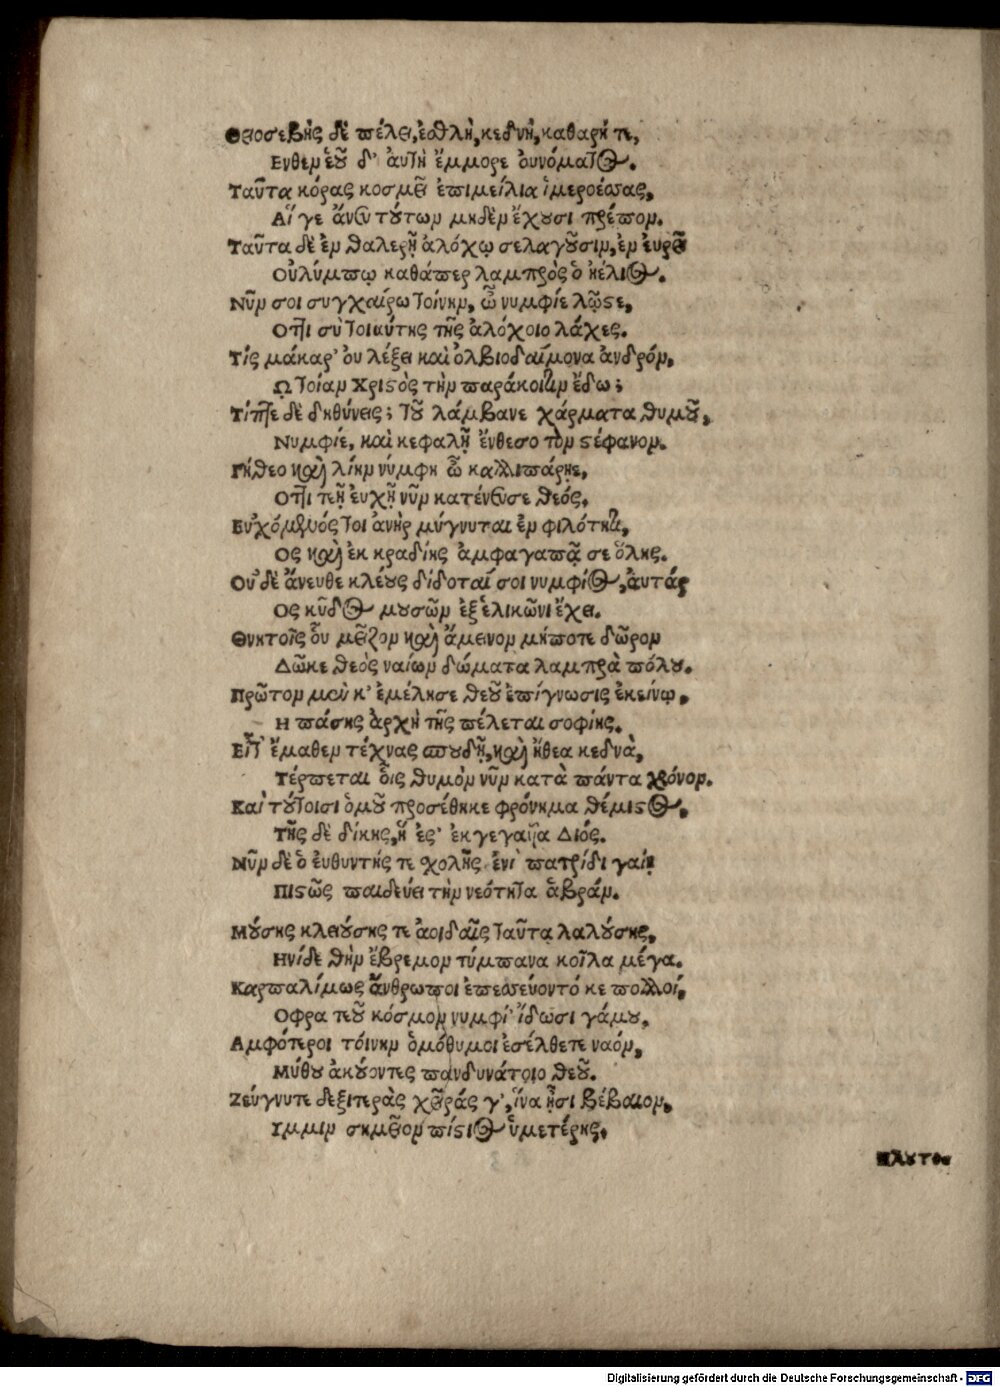 Θεοσεβὴς δὲ πέλει, ἐσθλὴ, κεδνὴ, καθαρή τε,
Ενθεμ ἑοῦ δ' αὐτὴ ἔμμορε οὐνόματος.
Ταῦτα κόρας κοσμεῖ ἐπιμείλια ἱμεροέσσας,
Αἵ γε ἄνευ τούτων μηδὲν ἔχουσι πρέπον.
Ταῦτα δὲ ἐν θαλερῇ ἀλόχῳ σελαγοῦσιν, ἐν εὐρεῖ
Οὐλύμπῳ καθάπερ λαμπρὸς ὁ ἠέλιος.
Νῦν σοι συγχαίρω τοίνην, ὦ νυμφίε λῷστε,
Οττι σὺ τοιαύτης τῆς ἀλόχοιο λάχες.
Τίς μάκαρ' οὐ λέξει καὶ ὀλβιοδαίμονα ἀνδρόν,
Ω τοίαν Χριστὸς τὴν παράκοιτιν ἔδω;
Τίπτε δὲ δηθύνεις; τοῦ λάμβανε χάρματα θυμοῦ,
Νυμφίε, καὶ κεφαλῇ ἔνθεσο τὸν στέφανον.
Γήθεο καὶ λίην νύμφη ὦ καλλιπάρῃε,
Οττι τεῇ εὐχῇ νῦν κατένευσε θεός.
Εὐχόμενός τοι ἀνὴρ μίγνυται ἐν φιλότητι,
Ος καὶ ἐκ κραδίης ἀμφαγαπᾷ σε ὅλης.
Οὐ δὲ ἄνευθε κλέους δίδοταί σοι νυμφίος, αὐτάρ
Ος κῦδος μουσῶν ἐξ ἑλικῶνι ἔχει.
Θνητοῖς οὗ μεῖζον καὶ ἄμεινον μήποτε δῶρον
Δῶκε θεὸς ναίων δώματα λαμπρὰ πόλου.
Πρῶτον μὲν κ' ἐμέλησε θεοῦ ἐπίγνωσις ἐκείνῳ,
Η πάσης ἀρχὴ τῆς πέλεται σοφίης.
Εἶτ' ἔμαθεν τέχνας σπουδῇ, καὶ ἤθεα κεδνὰ,
Τέρπεται οἷς θυμὸν νῦν κατὰ πάντα χρόνον.
Καὶ τούτοισι ὁμοῦ προσέθηκε φρόνημα θέμιστος,
Τῆς δὲ δίκης, ἥ ἐστ' ἐκγεγαῖα Διός.
Νῦν δὲ ὁ εὐθυντής τε χολῆς ἐνὶ πατρίδι γαίῃ
Πιστῶς παιδεύει τὴν νεότητα ἁβράν.
Μούσης κλειούσης τε ἀοιδαῖς ταῦτα λαλούσης,
Ηνίδε θὴν ἔβρεμον τύμπανα κοῖλα μέγα.
Καρπαλίμως ἄνθρωποι ἐπεσεύοντό κε πολλοί,
Οφρα τεοῦ κόσμον νυμφί' ἴδωσι γάμου.
Αμφότεροι τόινην ὁμόθυμοι ἐσέλθετε ναόν,
Μύθου ἀκούοντες πανδυνάτοιο θεοῦ.
Ζεύγνυτε δεξιτερὰς χεῖράς γ', ἵνα ᾖσι βέβαιον,
Υμμιν σημεῖον πίστιος ὑμετέρης.
Πλουτο
Digitalisierung gefördert durch die Deutsche Forschungsgemeinschaft - DFG